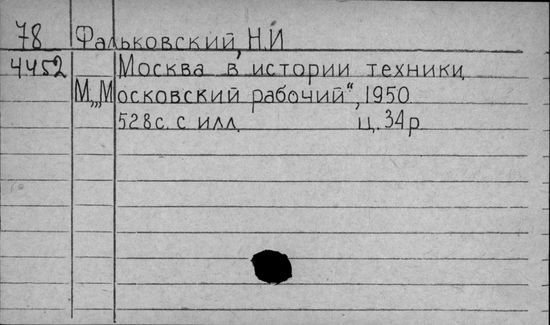 78 Фальковский, Н.И
4452 Москва в истории техники
М., „Московский рабочий“, 1950
528с. с илл. ц. 34р